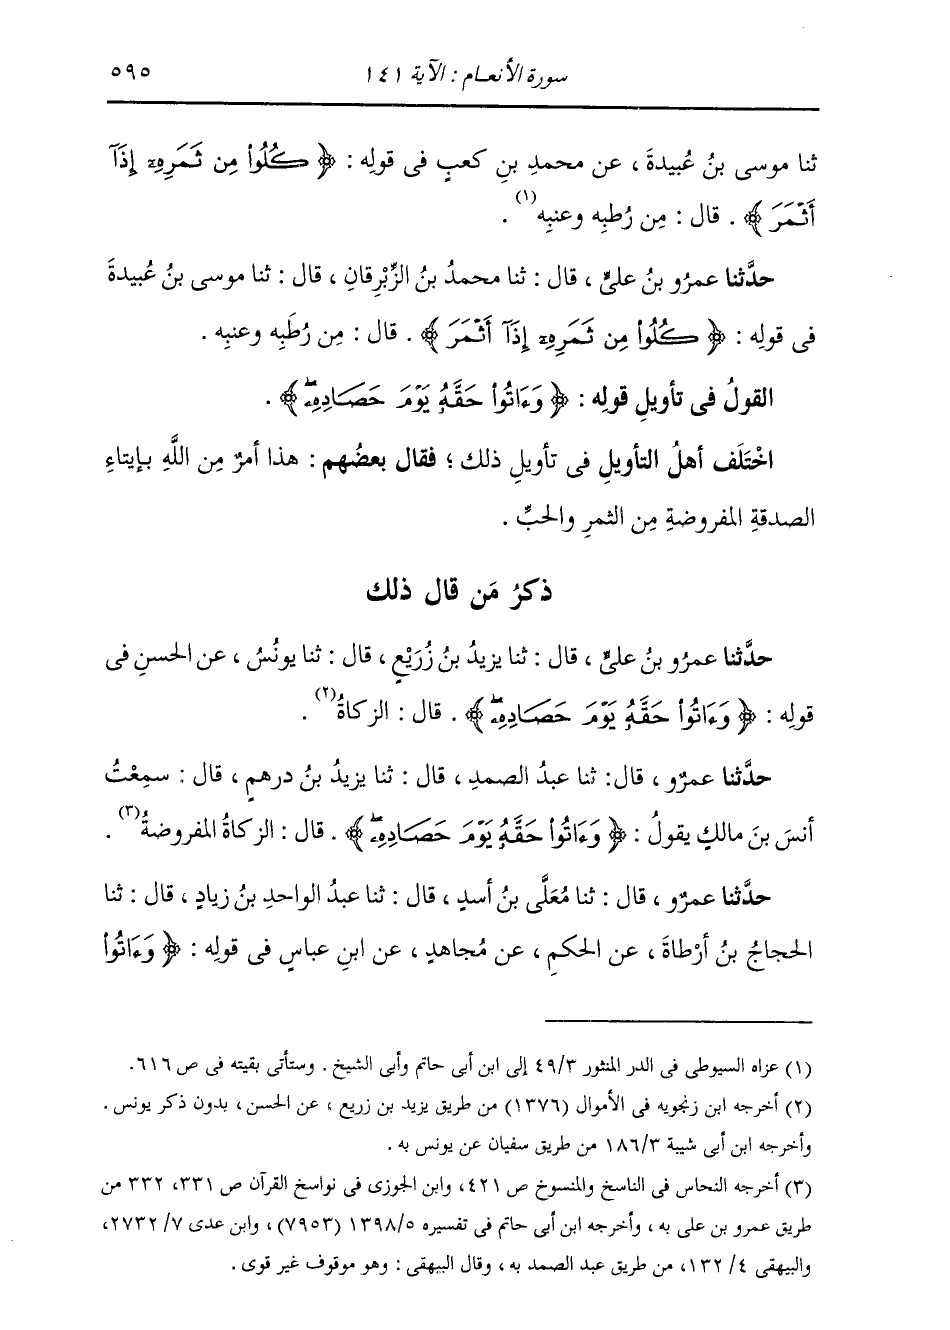 سورة الأنعام : الآية ١٤١
٥٩٥
ثنا موسى بنُ عُبيدةَ ، عن محمدِ بنِ كعبٍ فى قولِه : ﴿ كُلُوا۟ مِن ثَمَرِهِۦٓ إِذَآ
أَثْمَرَ ﴾ . قال : مِن رُطبِه وعنبِه(١) .
حدَّثنا عمرُو بنُ علىٍّ ، قال : ثنا محمدُ بنُ الزِّبْرِقانِ ، قال : ثنا موسى بنُ عُبيدةَ
فى قولِه : ﴿ كُلُوا۟ مِن ثَمَرِهِۦٓ إِذَآ أَثْمَرَ ﴾ . قال : مِن رُطَبِه وعنبِه .
القولُ فى تأويلِ قولِه : ﴿ وَءَاتُوا۟ حَقَّهُۥ يَوْمَ حَصَادِهِۦۖ ﴾ .
اخْتَلَف أهلُ التأويلِ فى تأويلِ ذلك ؛ فقال بعضُهم : هذا أمرٌ مِن اللَّهِ بإيتاءِ
الصدقةِ المفروضةِ مِن الثمرِ والحبِّ .
ذكرُ مَن قال ذلك
حدَّثنا عمرُو بنُ علىٍّ ، قال : ثنا يزيدُ بنُ زُرَيْعٍ ، قال : ثنا يونُسُ ، عن الحسنِ فى
قولِه : ﴿ وَءَاتُوا۟ حَقَّهُۥ يَوْمَ حَصَادِهِۦۖ ﴾ . قال : الزكاةُ(٢) .
حدَّثنا عمرٌو ، قال: ثنا عبدُ الصمدِ ، قال : ثنا يزيدُ بنُ درهمٍ ، قال : سمِعْتُ
أنسَ بنَ مالكٍ يقولُ : ﴿ وَءَاتُوا۟ حَقَّهُۥ يَوْمَ حَصَادِهِۦۖ ﴾ . قال : الزكاةُ المفروضةُ(٣) .
حدَّثنا عمرٌو ، قال : ثنا مُعَلَّى بنُ أسدٍ ، قال : ثنا عبدُ الواحدِ بنُ زيادٍ ، قال : ثنا
الحجاجُ بنُ أرْطاةَ ، عن الحكمِ ، عن مُجاهدٍ ، عن ابنِ عباسٍ فى قولِه : ﴿ وَءَاتُوا۟
(١) عزاه السيوطى فى الدر المنثور ٤٩/٣ إلى ابن أبى حاتم وأبى الشيخ . وستأتى بقيته فى ص ٦١٦.
(٢) أخرجه ابن زنجويه فى الأموال (١٣٧٦) من طريق يزيد بن زريع ، عن الحسن ، بدون ذكر يونس .
وأخرجه ابن أبى شيبة ١٨٦/٣ من طريق سفيان عن يونس به .
(٣) أخرجه النحاس فى الناسخ والمنسوخ ص ٤٢١، وابن الجوزى فى نواسخ القرآن ص ٣٣١، ٣٣٢ من
طريق عمرو بن على به ، وأخرجه ابن أبى حاتم فى تفسيره ١٣٩٨/٥ (٧٩٥٣) ، وابن عدى ٧/ ٢٧٣٢،
والبيهقى ٤/ ١٣٢، من طريق عبد الصمد به ، وقال البيهقى : وهو موقوف غير قوى .